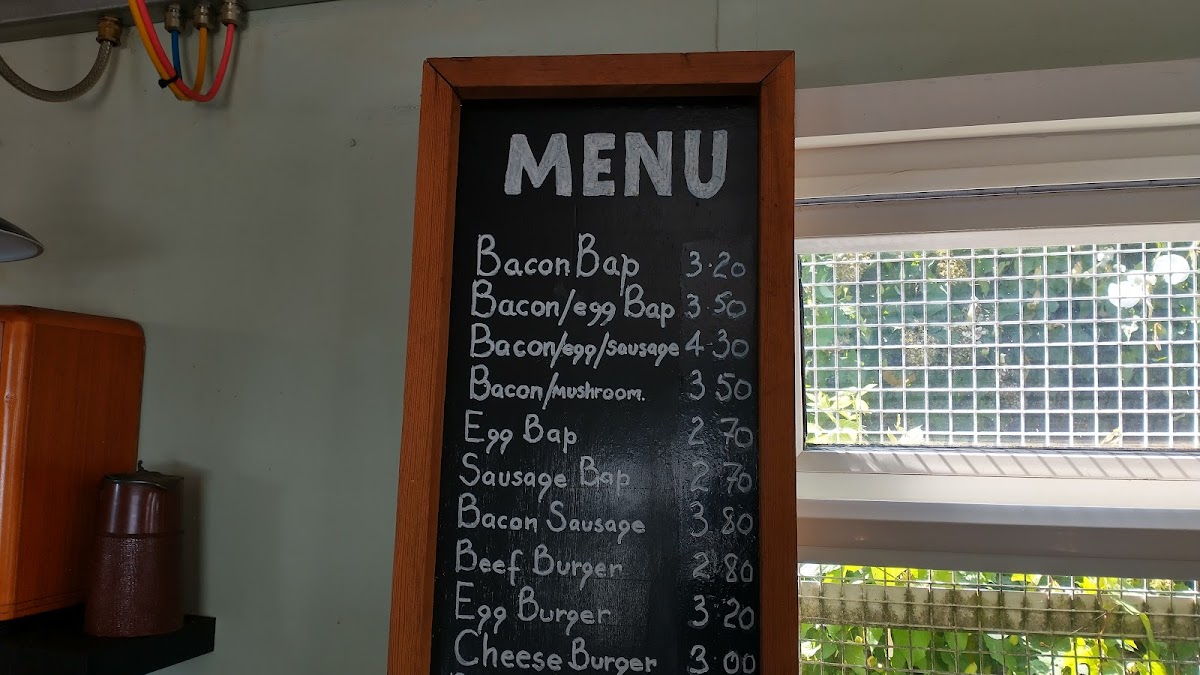 MENU
Bacon Bap 3.20
Bacon/egg Bap 3.50
Bacon/egg/Sausage 4 30
Bacon/Mushroom. 3 50
Egg Bap 2 70
Sausage Bap 2 70
Bacon Sausage 3.80
Beef Burger 2 80
Egg Burger 3.20
Cheese Burger 3 00